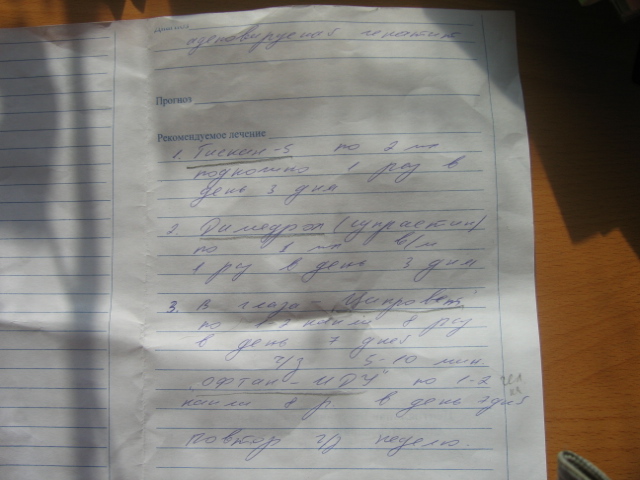 аденовирусная гепатит
Прогноз
Рекомендуемое лечение
1. Гискан-5 по 2 мл
подкожно 1 раз в
день 3 дня
2. Димедрол (супрастин)
по 1 мл в/м
1 раз в день 3 дня
3. В глаза - "Ципровет"
по 1-2 капли 8 раз
в день 7 дней
ч/з 5-10 мин.
"Офтан-ИДУ" по 1-2
капли 8 р в день 7 дней
Повтор ч/з неделю.